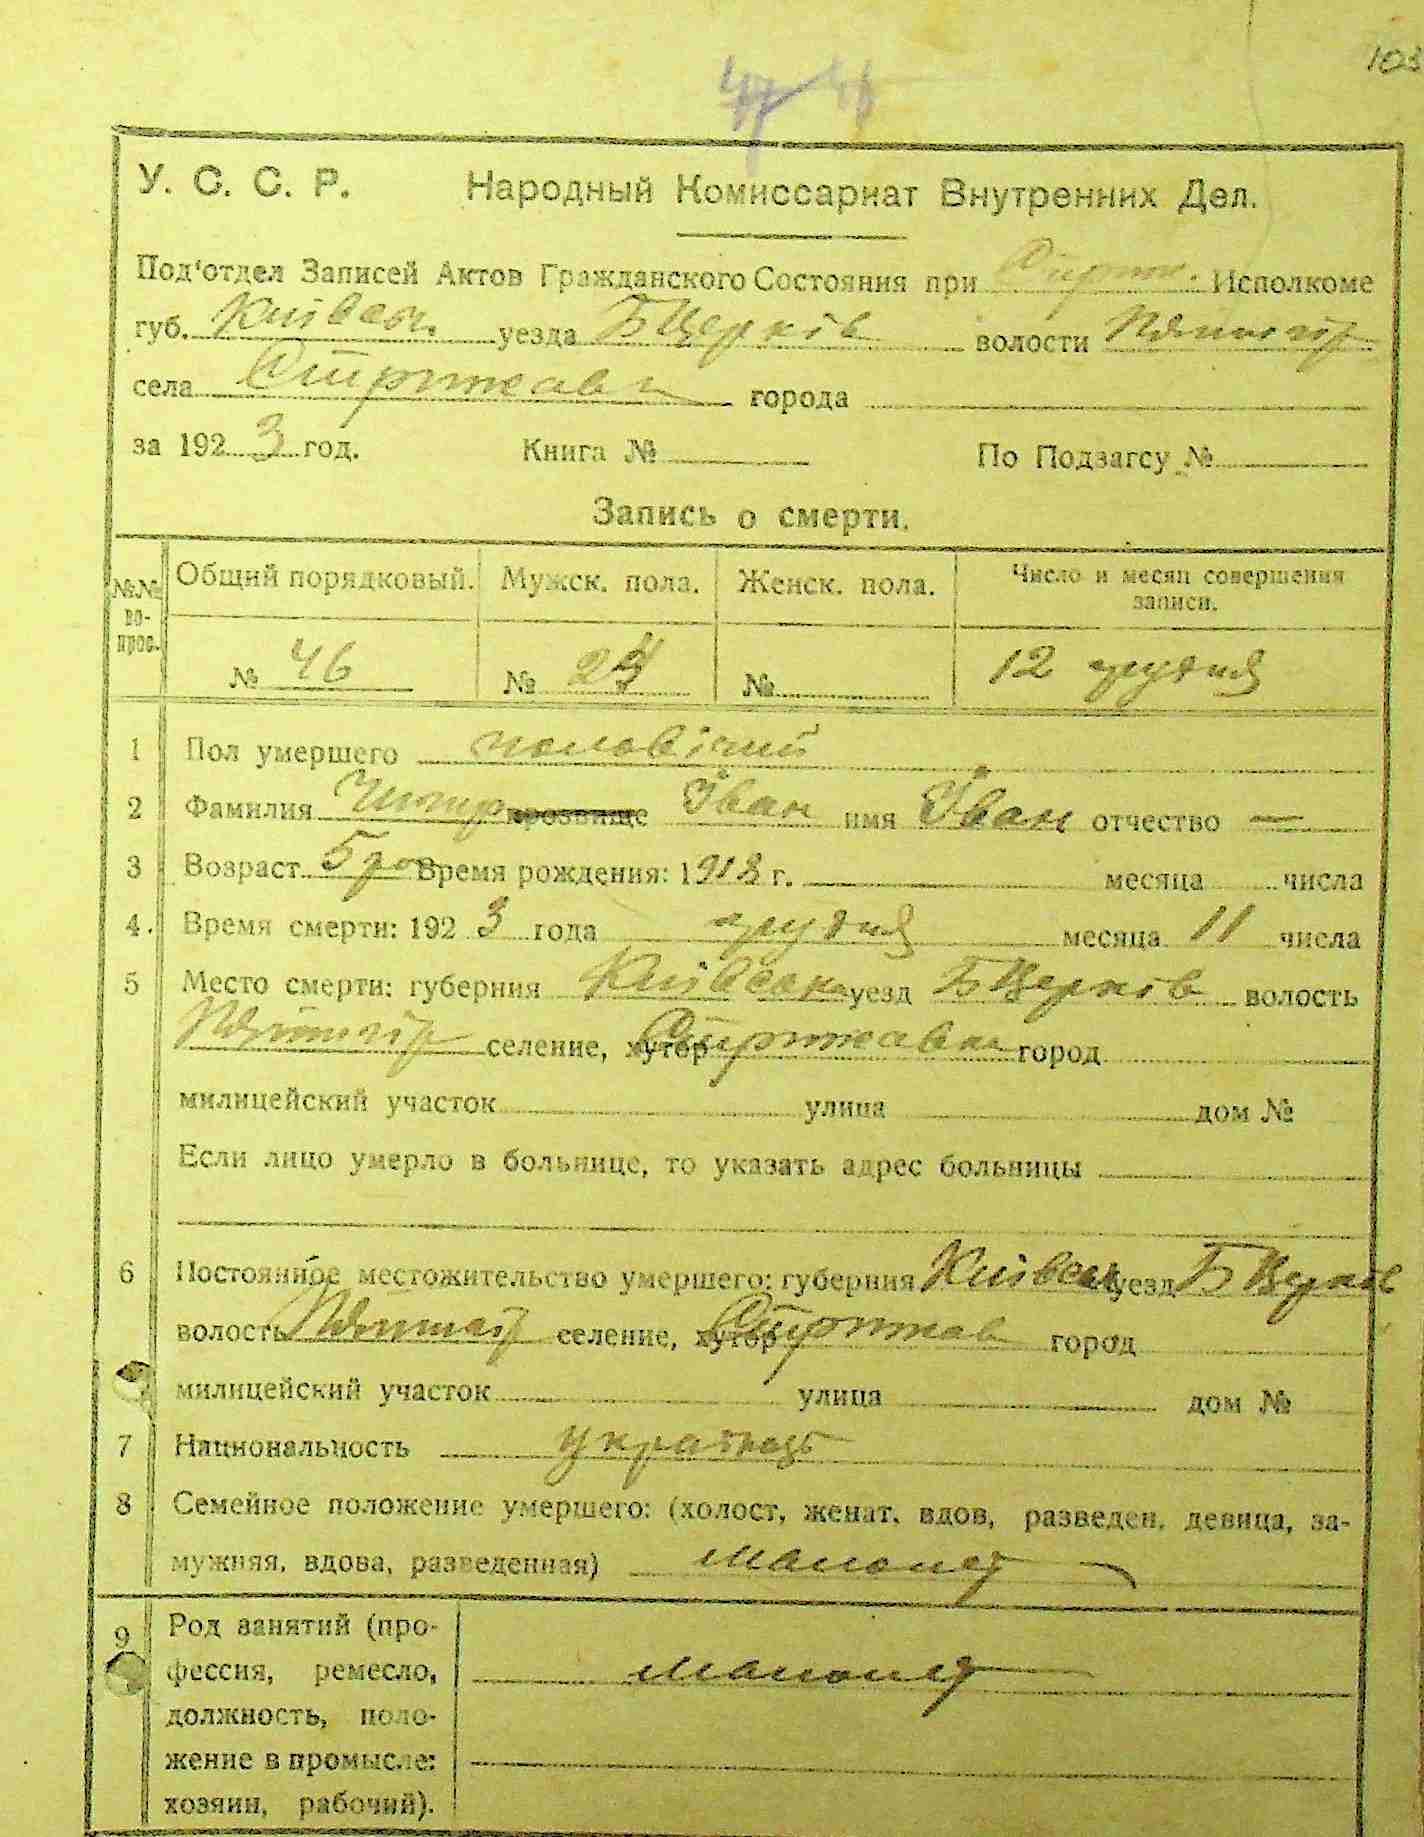 103
47 46
У. С. С. Р. Народный Комиссариат Внутренних Дел.
Под'отдел Записей Актов Гражданского Состояния при Стриж. Исполкоме
губ. Київськ. уезда БЦерків волости Пятигір
села Стрижавка города
за 1923 год. Книга № По Подзагсу №
Запись о смерти.
№№ во- прос. Общий порядковый. Мужск. пола. Женск. пола. Число и месяц совершения записи.
№ 46 № 24 № 12 грудня
1 Пол умершего чоловічий
2 Фамилия прозвище Іван имя Іван отчество —
3 Возраст 5 рок Время рождения: 1918 г. месяца числа
4. Время смерти: 1923 года грудня месяца 11 числа
5 Место смерти: губерния Київська уезд БЦерків волость
Пятигір селение, хутор Стрижавка город
милицейский участок улица дом №
Если лицо умерло в больнице, то указать адрес больницы
6 Постоянное местожительство умершего: губерния Київськ уезд БЦерків
волость Пятигір селение, хутор Стрижав город
милицейский участок улица дом №
7 Национальность українець
8 Семейное положение умершего: (холост, женат, вдов, разведен, девица, за-
мужняя, вдова, разведенная) малолід
9 Род занятий (про-
фессия, ремесло, малолід
должность, поло-
жение в промысле:
хозяин, рабочий).